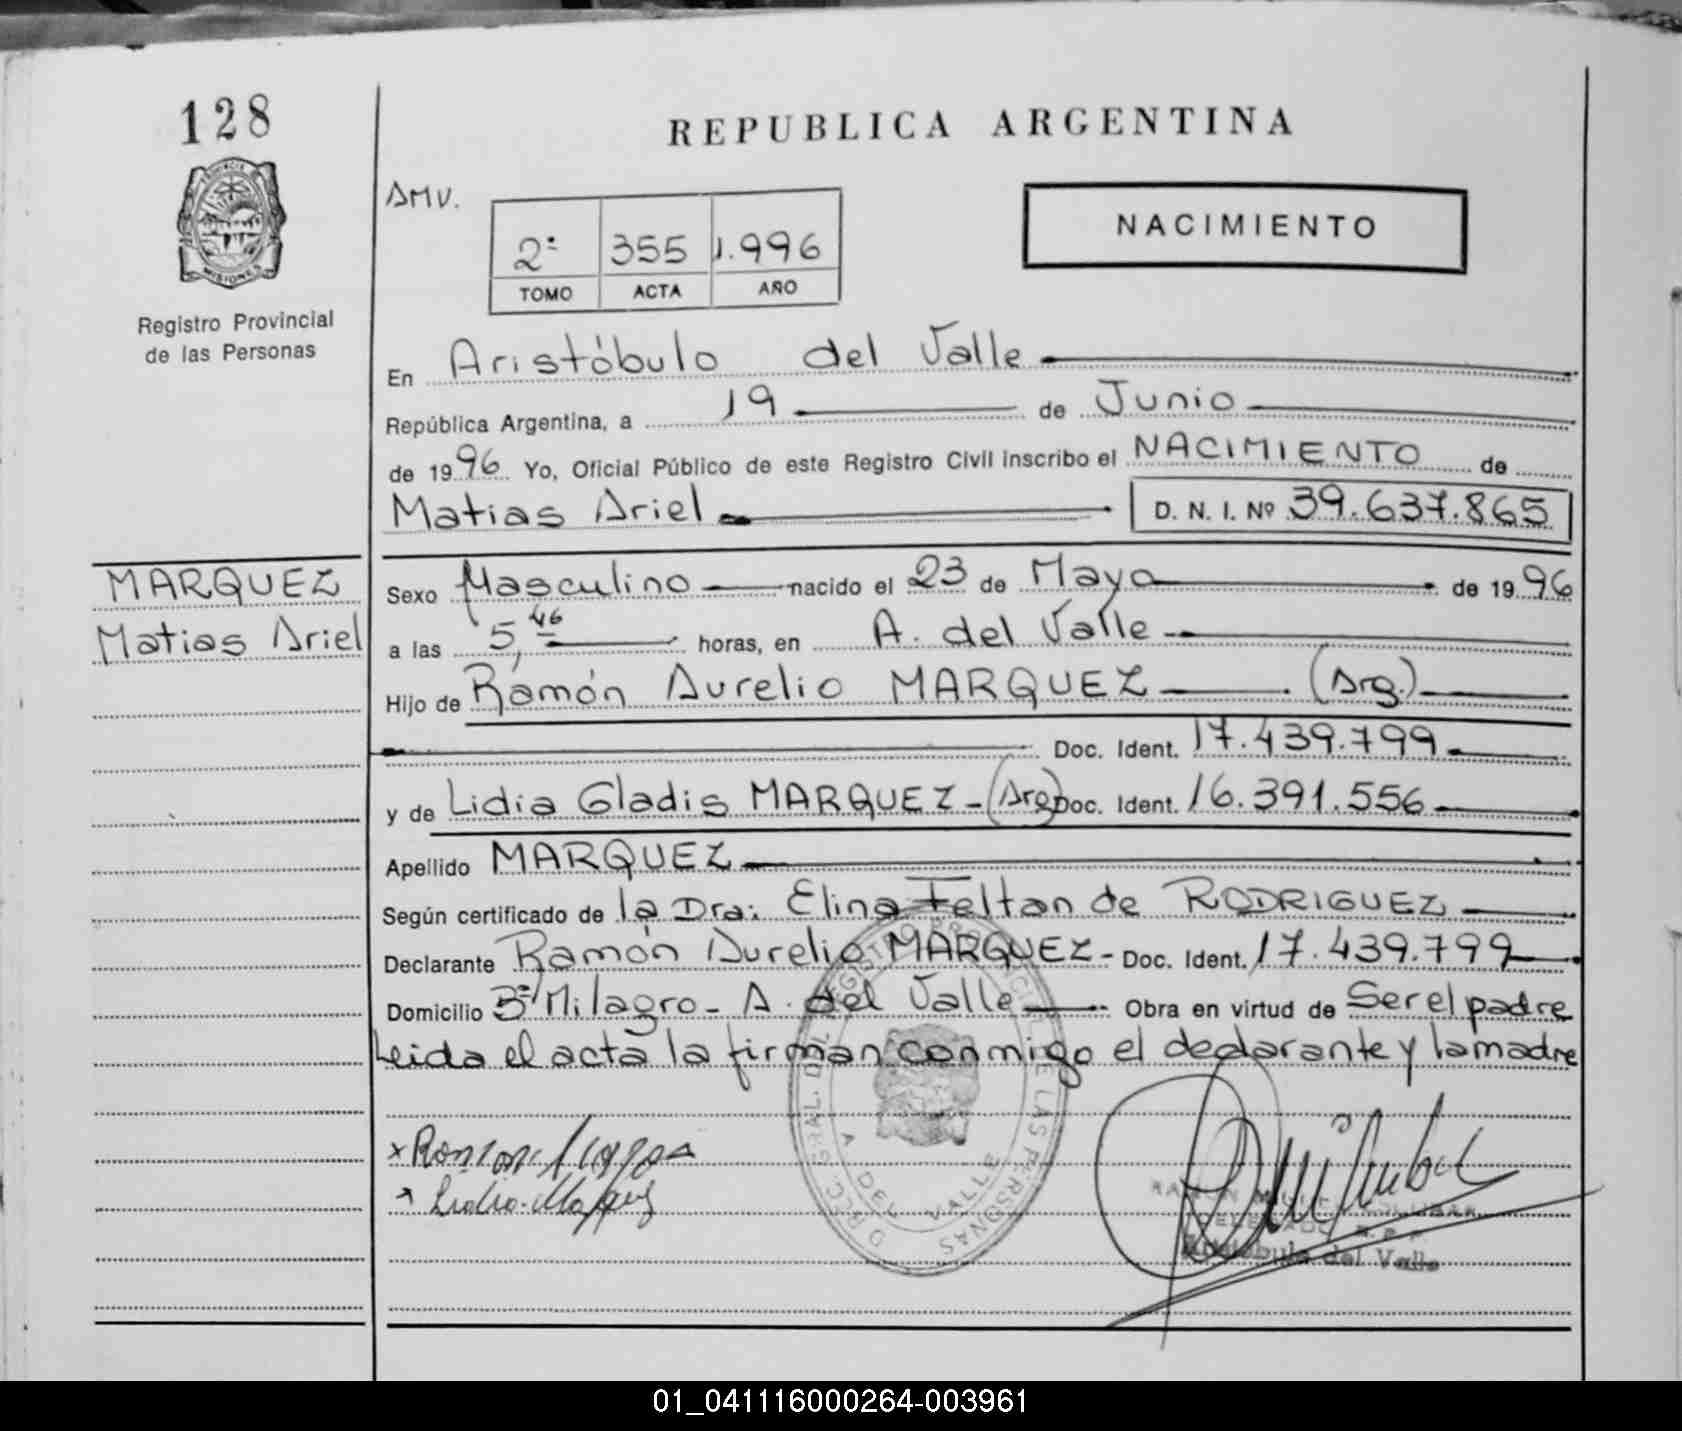 128
REPUBLICA ARGENTINA
AMV.
NACIMIENTO
2º 355 1.996
TOMO ACTA AÑO
MISIONES
Registro Provincial
de las Personas
En Aristóbulo del Valle
República Argentina, a 19 de Junio
de 1996 Yo, Oficial Público de este Registro Civil inscribo el NACIMIENTO de
Matias Ariel D. N. I. Nº 39.637.865
MARQUEZ
Matias Ariel
Sexo Masculino nacido el 23 de Mayo de 1996
a las 5,46 horas, en A. del Valle
Hijo de Ramón Aurelio MARQUEZ (Arg.)
Doc. Ident. 17.439.799
y de Lidia Gladis MARQUEZ - (Arg) Doc. Ident. 16.391.556
Apellido MARQUEZ
Según certificado de la Dra: Elina Feltan de RODRIGUEZ
Declarante Ramón Aurelio MARQUEZ - Doc. Ident. 17.439.799
Domicilio Bº Milagro - A. del Valle Obra en virtud de Ser el padre
Leida el acta la firman conmigo el declarante y la madre
DIREC. GRAL. DEL REGISTRO PROVINCIAL DE LAS PERSONAS
A. DEL VALLE
Aristóbulo del Valle
01_041116000264-003961